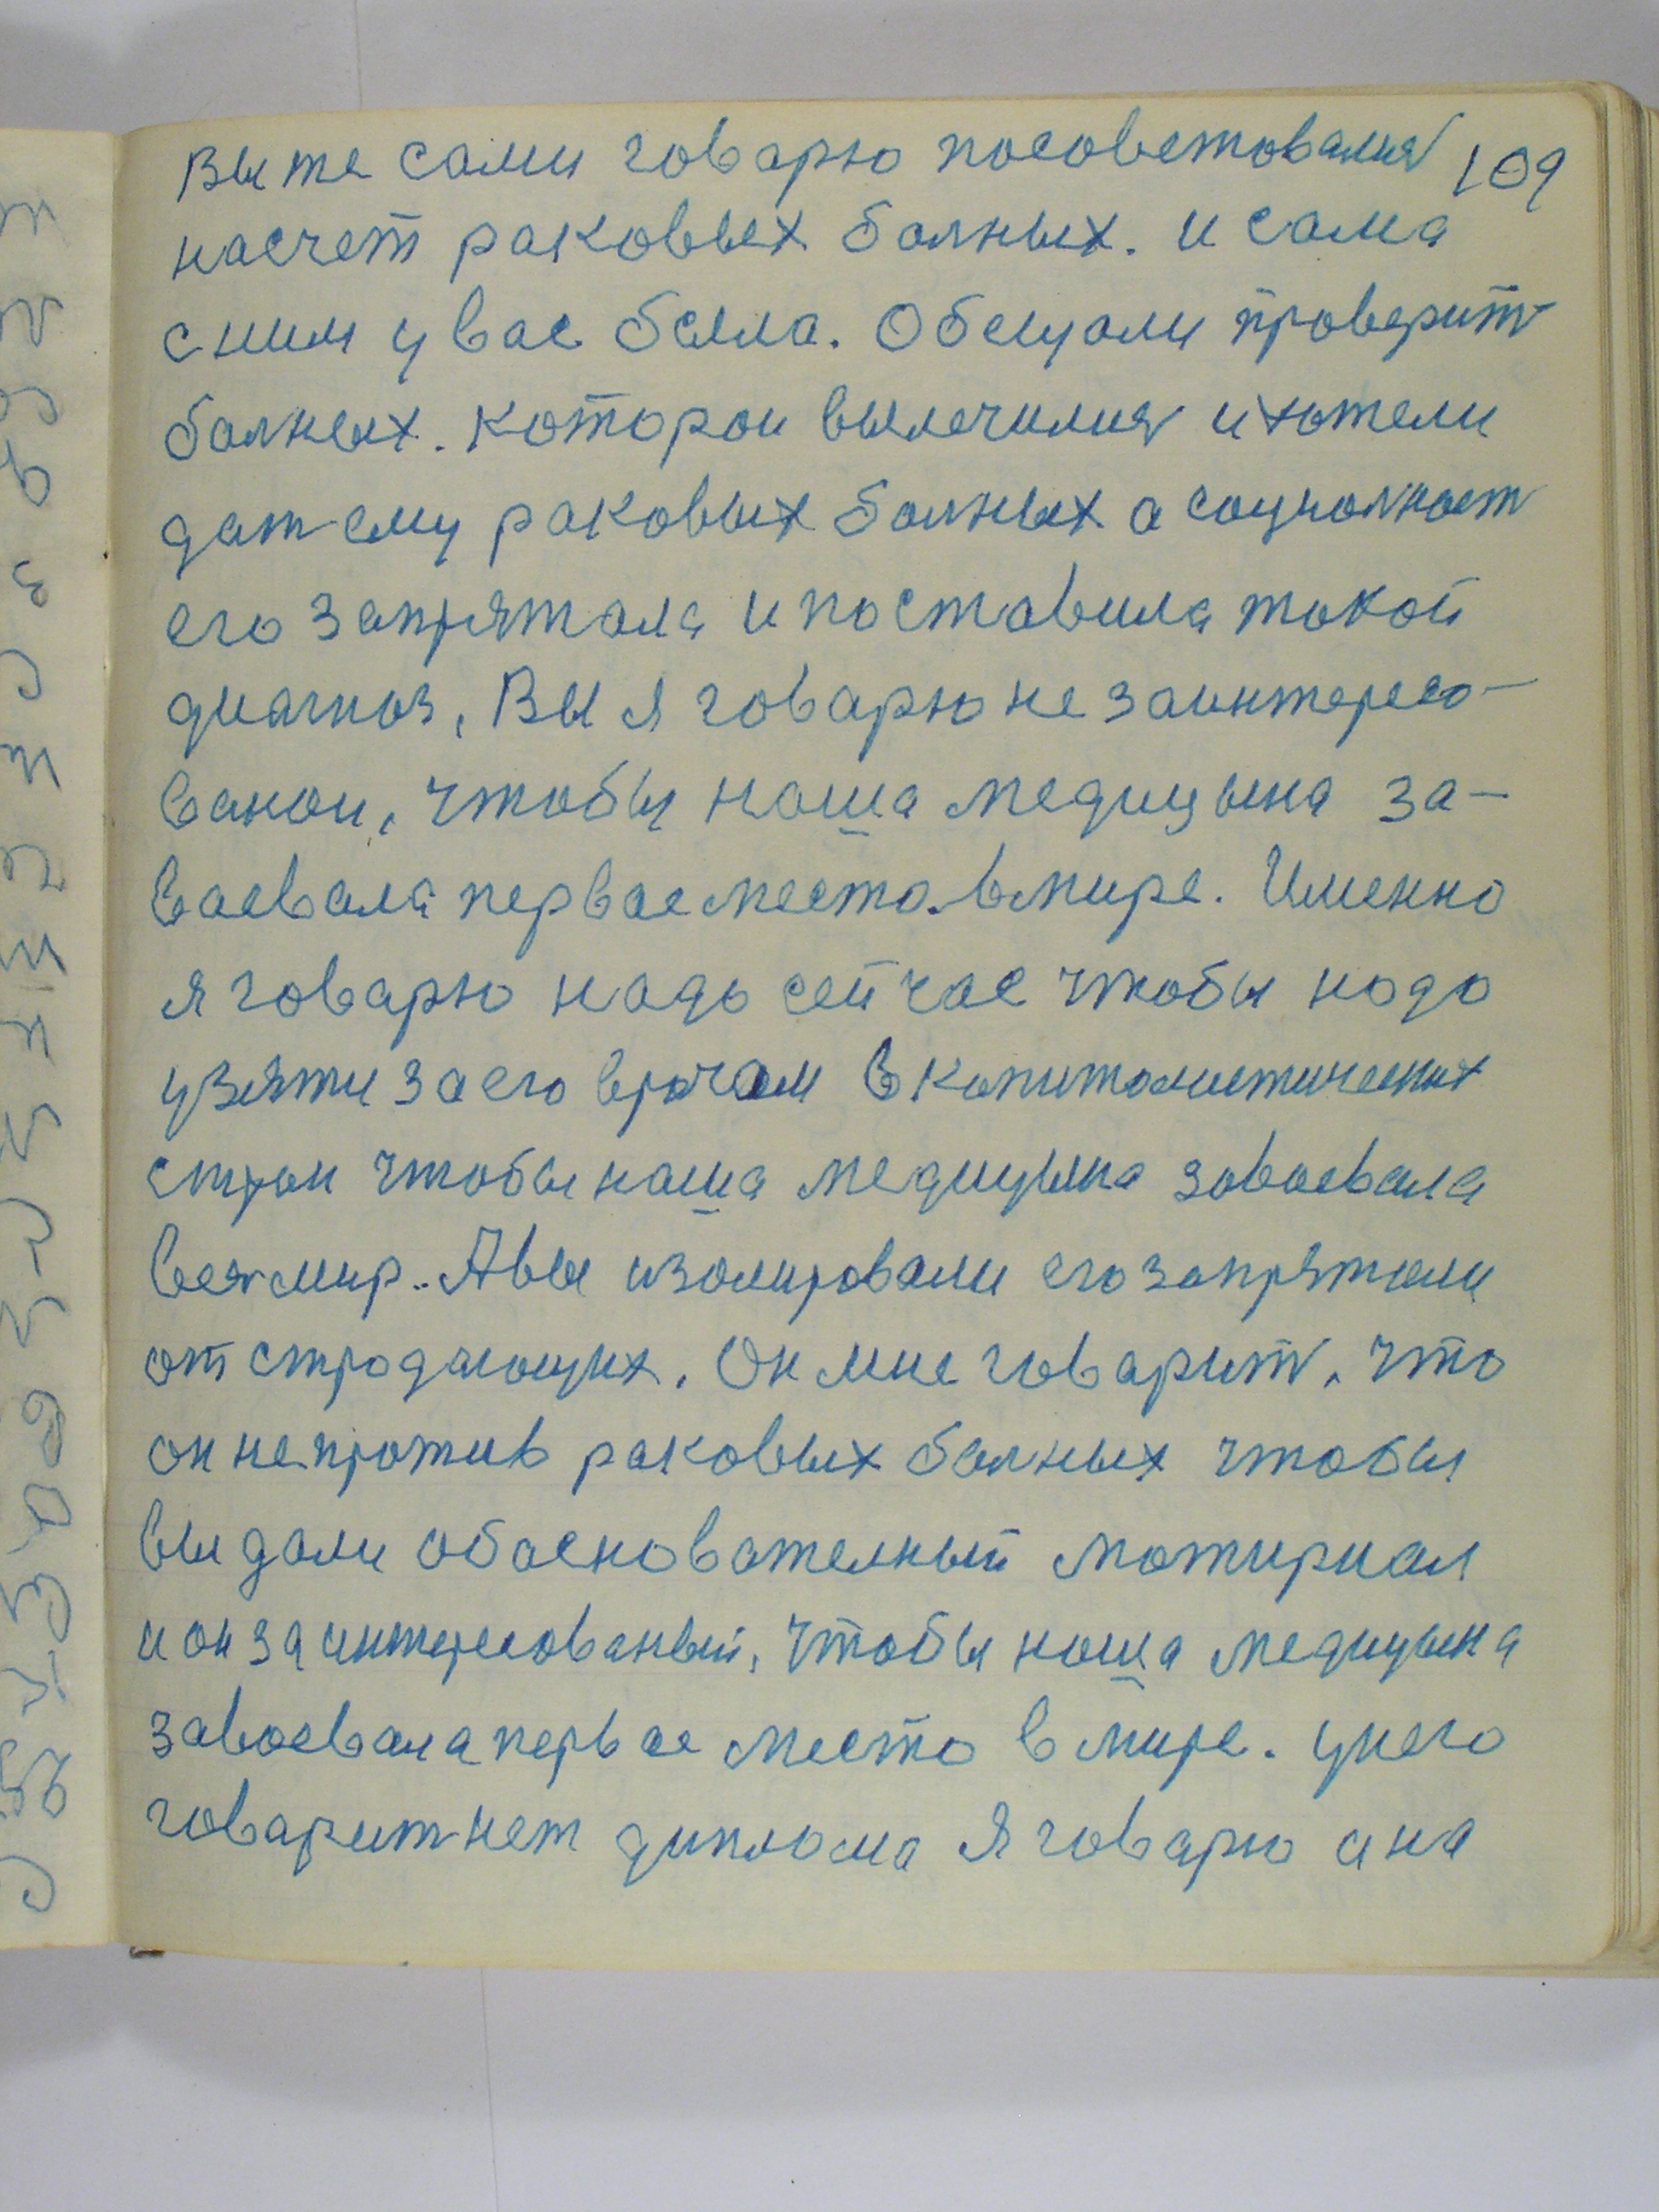 Вы те сами говарю посоветовалия 109
насчет раковых болных. и сама
с ним у вас была. Обещали проверит
болных. которои вылечилия и хотели
дат ему раковых болных а
его запрятала и поставила такой
диагноз, Вы я говарю не заинтересо-
ванои, чтобы наша медицына за-
ваевала первае место в мире. Именно
я говарю надо сейчас чтобы надо
узяти за его врачам в капиталистических
стран чтобы наша медицына завоевала
весь мир.. А вы изолировали его запрятали
от страдающих. Он мне говарит, что
он не против раковых болных чтобы
вы дали обаснователный матириал
и он заинтересованый, чтобы наша медицына
завоевала первае место в мире. у него
говарит нет диплома я говарю а на